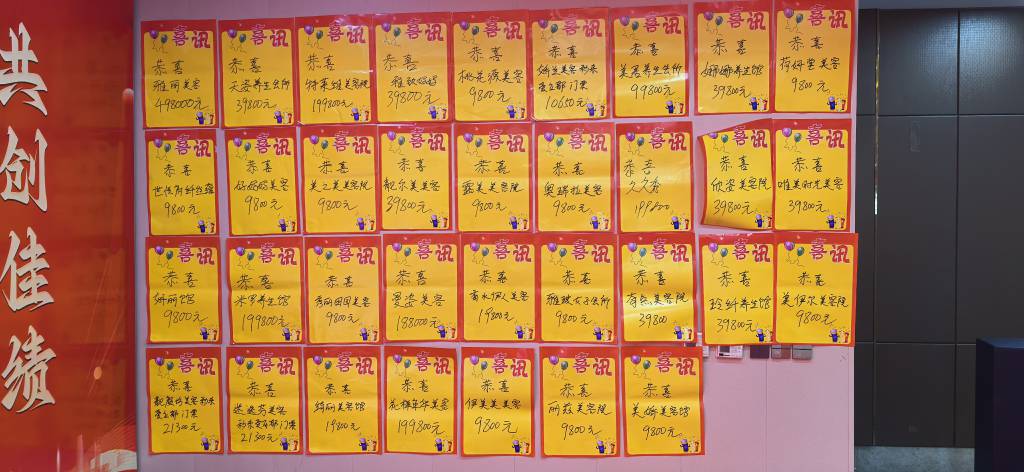 共创佳绩
喜讯
恭喜
雅丽美容
498000元
喜讯
恭喜
天姿养生会所
39800元
喜讯
恭喜
199800元
喜讯
恭喜
39800元
喜讯
恭喜
9800元
喜讯
恭喜
10650元
喜讯
恭喜
99800元
喜讯
恭喜
娜娜养生馆
39800元
喜讯
恭喜
9800元
喜讯
恭喜
9800元
喜讯
恭喜
9800元
喜讯
恭喜
美之美美容院
9800元
喜讯
恭喜
靓尔美美容
39800元
喜讯
恭喜
9800元
喜讯
恭喜
奥瑞拉美容
9800元
喜讯
恭喜
199800
喜讯
恭喜
欣姿美容院
39800元
喜讯
恭喜
唯美时光美容
39800元
喜讯
恭喜
妍丽馆
9800元
喜讯
恭喜
米罗养生馆
199800元
喜讯
恭喜
秀丽田园美容
9800元
喜讯
恭喜
曼姿美容
188000元
喜讯
恭喜
香水伊人美容
19800元
喜讯
恭喜
9800元
喜讯
恭喜
39800
喜讯
恭喜
玲纤养生馆
39800元
喜讯
恭喜
美伊尔美容院
9800元
喜讯
恭喜
21300元
喜讯
恭喜
21300元
喜讯
恭喜
绮丽美容馆
19800元
喜讯
恭喜
199800元
喜讯
恭喜
伊美美美容
9800元
喜讯
恭喜
丽兹美容院
9800元
喜讯
恭喜
美娇美容馆
9800元